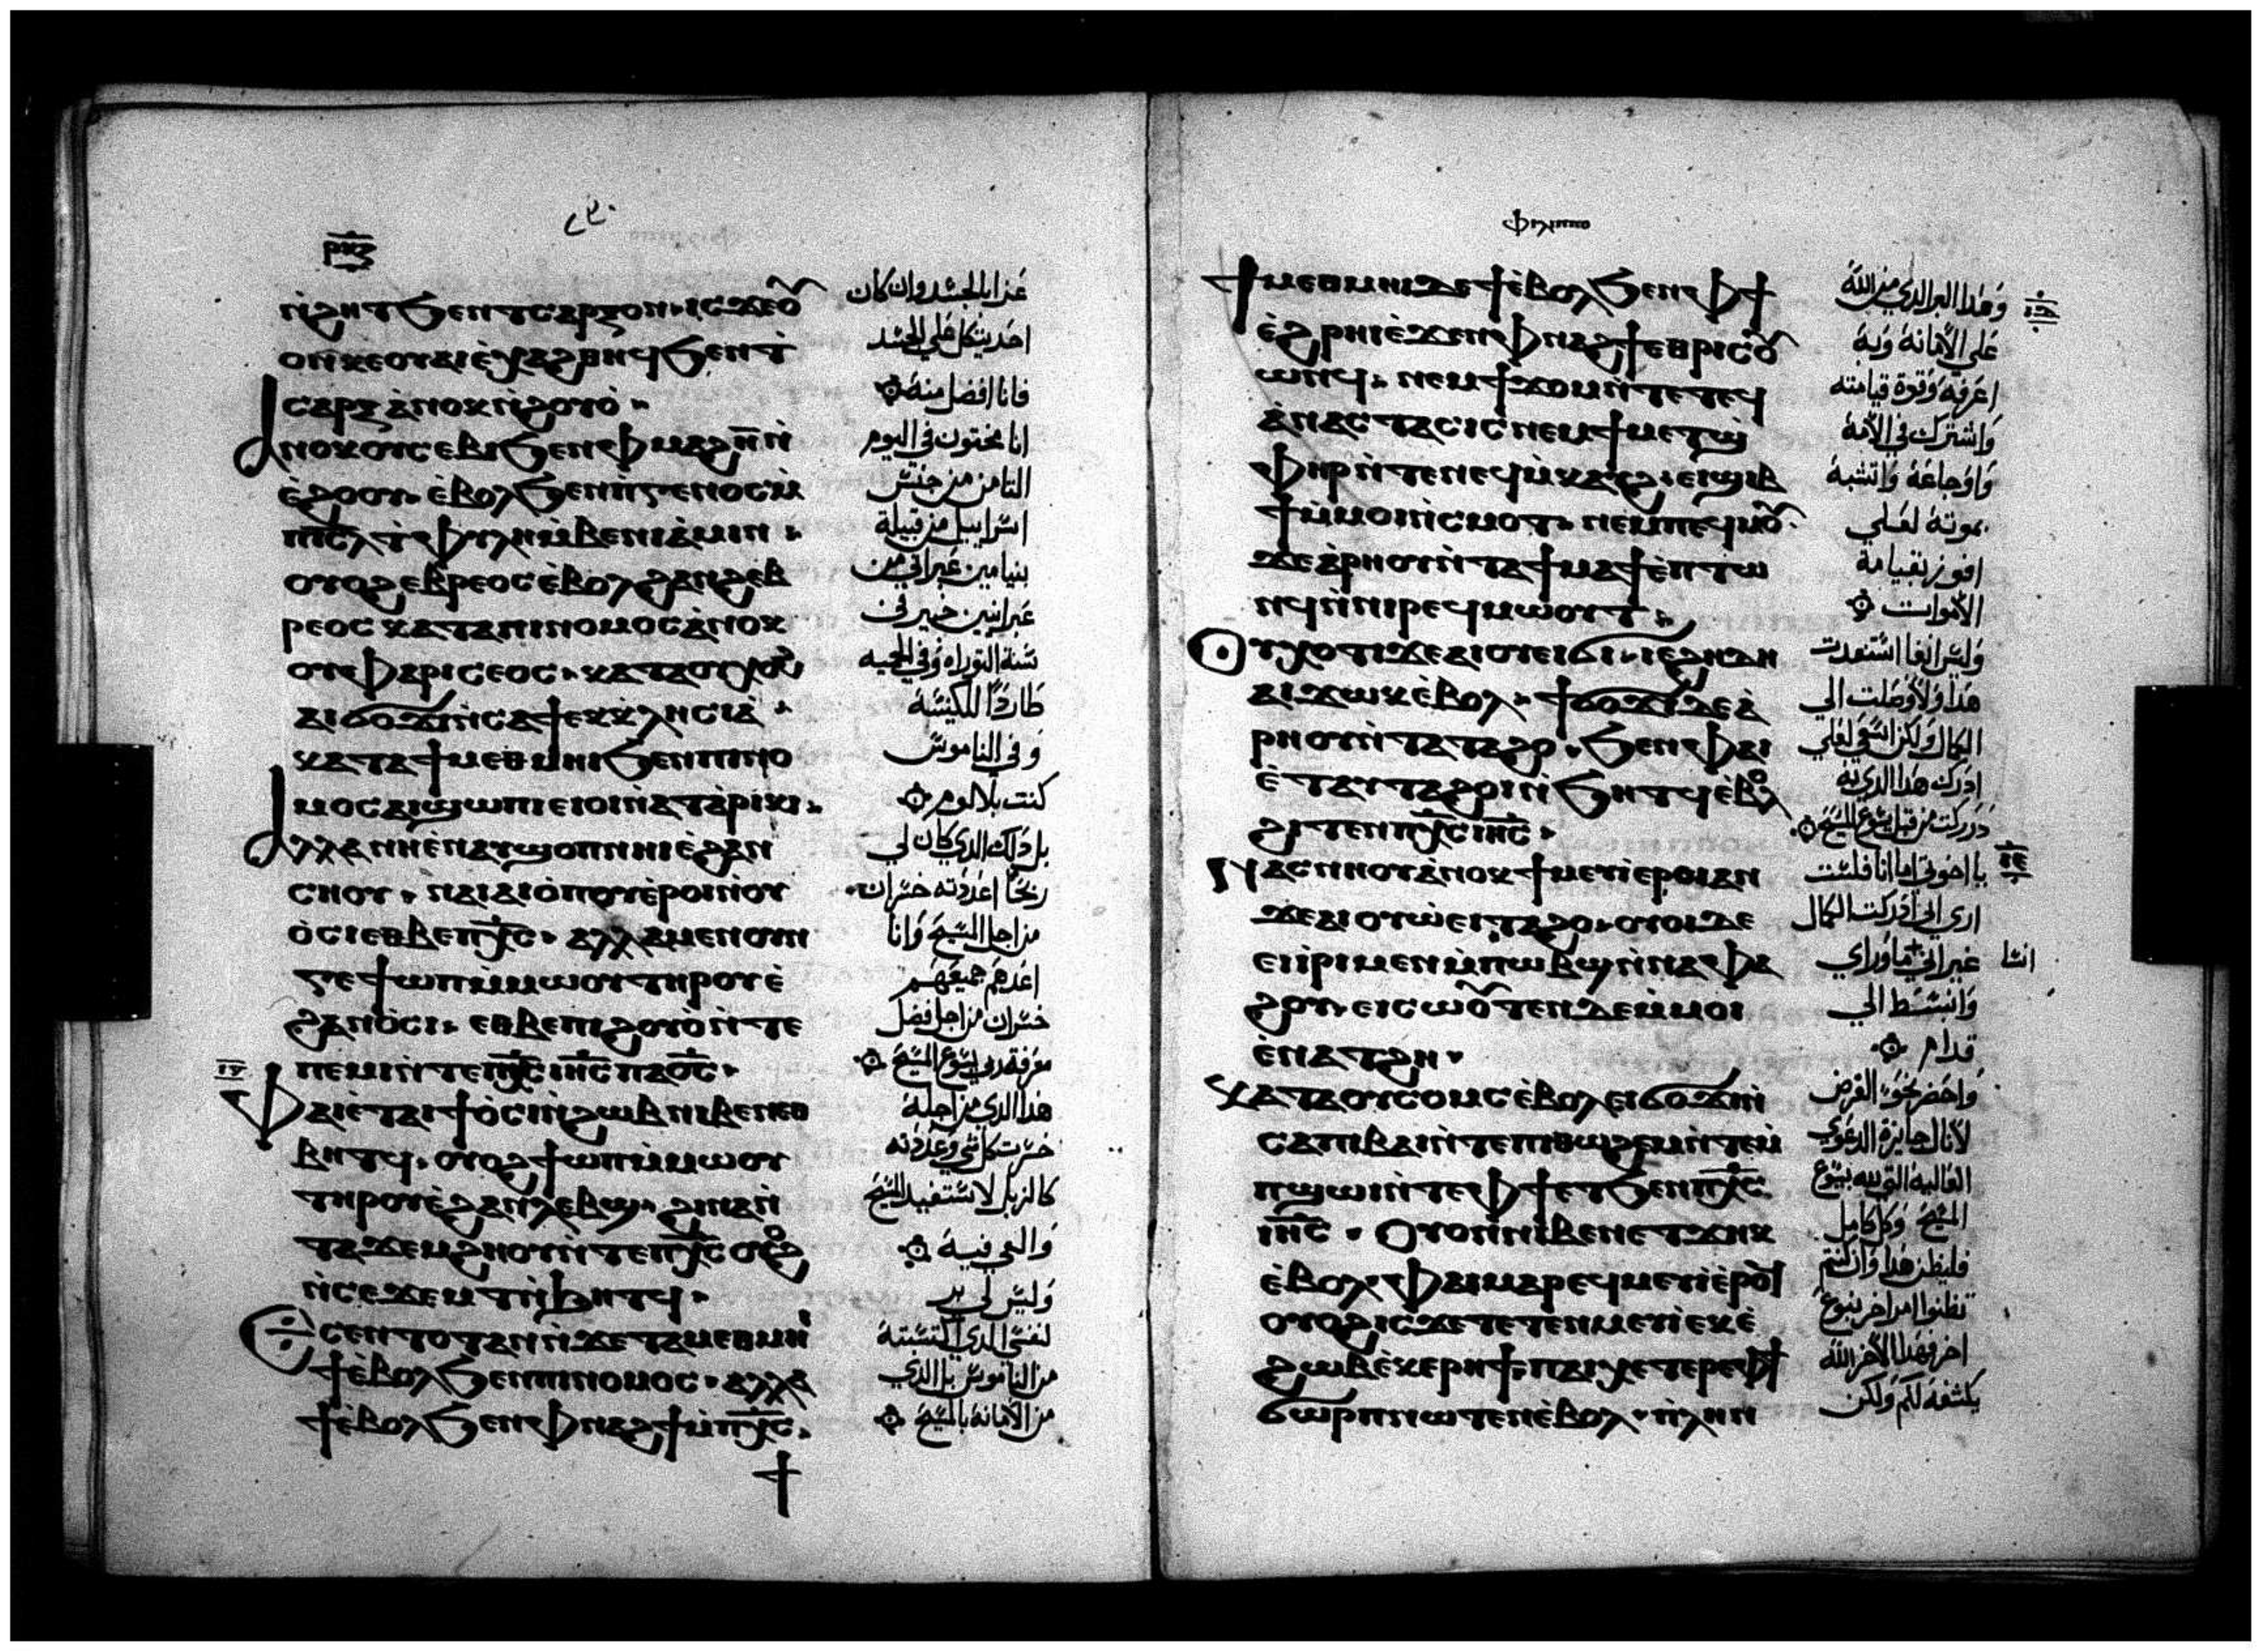 ⲣⲕⲍ
ⲛ̀ϩⲏⲧ ϧⲉⲛ ⲧⲥⲁⲣⲝ ⲟⲛ · ⲓⲥϫⲉ ⲟⲩ
ⲟⲛ ⲕⲉⲟⲩⲁⲓ ⲉ̀ϥⲭⲁϩⲑⲏϥ ϧⲉⲛ ⲧ̀
ⲥⲁⲣⲝ ⲁ̀ⲛⲟⲕ ⲛ̀ϩⲟⲩⲟ̀ ·
ⲁⲛⲟⲕ ⲟⲩⲥⲉⲃⲓ ϧⲉⲛ ⲫⲙⲁϩⲏ̅ ⲛ̀
ⲉ̀ϩⲟⲟⲩ · ⲉ̀ⲃⲟⲗ ϧⲉⲛ ⲡ̀ⲅⲉⲛⲟⲥ ⲙ̀
ⲡⲓⲥ̅ⲗ̅ ⲧ̀ⲫⲩⲗⲏ ⲙ̀ⲃⲉⲛⲓⲁ̀ⲙⲓⲛ ·
ⲟⲩⲟϩ ⲉⲃⲣⲉⲟⲥ ⲉ̀ⲃⲟⲗ ϩⲁⲛϩⲉⲃ
ⲣⲉⲟⲥ ⲕⲁⲧⲁ ⲡⲓⲛⲟⲙⲟⲥ ⲁ̀ⲛⲟⲕ
ⲟⲩⲫⲁⲣⲓⲥⲉⲟⲥ · ⲕⲁⲧⲁ ⲟⲩⲭⲟϩ
ⲁⲓϭⲟϫⲓ ⲛ̀ⲥⲁ ϯⲉⲕⲕⲗⲏⲥⲓⲁ̀ ·
ⲕⲁⲧⲁ ϯⲙⲉⲑⲙⲏⲓ ϧⲉⲛ ⲡⲓⲛⲟ
ⲙⲟⲥ ⲁⲓϣⲱⲡⲓ ⲉⲓⲟⲓ ⲛ̀ⲁⲧⲁ̀ⲣⲓⲕⲓ ·
ⲁⲗⲗⲁ ⲛⲏ ⲉ̀ⲛⲁⲩϣⲟⲡ ⲛⲏⲓ ⲉ̀ϩⲁⲛ
ⲥⲏⲟⲩ · ⲛⲁⲓ ⲁⲓⲟ̀ⲡⲟⲩ ⲉ̀ⲣⲟⲓ ⲛ̀ⲟⲩ
ⲟ̀ⲥⲓ ⲉⲑⲃⲉ ⲡⲭ̅ⲥ̅ · ⲁⲗⲗⲁ ⲙⲉⲛⲟⲩⲛ
ⲅⲉ ϯⲱⲡ ⲙ̀ⲙⲱⲟⲩ ⲧⲏⲣⲟⲩ ⲉ̀
ϩⲁⲛⲟ̀ⲥⲓ · ⲉⲑⲃⲉ ⲡⲓϩⲟⲩⲟ̀ ⲛ̀ⲧⲉ
ⲡⲉⲙⲓ ⲛ̀ⲧⲉ ⲡⲭ̅ⲥ̅ ⲓⲏ̅ⲥ̅ ⲡⲁⲟ̅ⲥ̅ ·
ⲫⲁⲓ ⲉ̀ⲧⲁⲓϯⲟ̀ⲥⲓ ⲛ̀ϩⲱⲃ ⲛⲓⲃⲉⲛ ⲉⲑ
ⲃⲏⲧϥ · ⲟⲩⲟϩ ϯⲱⲡ ⲙ̀ⲙⲱⲟⲩ
ⲧⲏⲣⲟⲩ ⲉ̀ϩⲁⲛⲗⲉⲃϣ · ϩⲓⲛⲁ ⲛ̀
ⲧⲁϫⲉⲙϩⲏⲟⲩ ⲛ̀ⲧⲉ ⲡⲭ̅ⲥ̅ ⲟⲩⲟϩ
ⲛ̀ⲥⲉϫⲉⲙⲧ ⲛ̀ϧⲏⲧϥ ·
ⲉ̀ⲥⲉⲛⲧⲟⲧ ⲁⲛ ⲛ̀ϫⲉ ⲧⲁⲙⲉⲑⲙⲏⲓ
ϯⲉ̀ⲃⲟⲗ ϧⲉⲛ ⲡⲓⲛⲟⲙⲟⲥ · ⲁⲗⲗⲁ
ϯⲉ̀ⲃⲟⲗ ϧⲉⲛ ⲫⲛⲁϩϯ ⲙ̀ⲡⲭ̅ⲥ̅ ·
غزايا الجسد وان كان
احد يتكل على الجسد
فانا افضل منه
انا مختون في اليوم
الثامن من جنس
اسراييل من قبيلة
بنيامين عبراني من
عبرانيين
سنة التوراه وفي الحميه
طاردًا للكنيسة
وفي الناموس
كنت بلا لوم
بل ذلك الذي كان لي
ربحًا اعددته خسران
من اجل المسيح وانا
اعدهم جميعهم
خسران من اجل افضل
معرفة ربي يسوع المسيح
هذا الذي من اجله
خسرت كل شي وعددته
كالزبل لاستفيد المسيح
والتجي فيه
وليس لي بر
لنفسي الذي اكتسبته
من الناموس بل الذي
من الامانة بالمسيح
ⲫⲓⲗⲓⲡⲡⲟ
ϯⲙⲉⲑⲙⲏⲓ ⲇⲉ ϯⲉ̀ⲃⲟⲗ ϧⲉⲛ ⲫϯ
ⲉ̀ϩⲣⲏⲓ ⲉ̀ϫⲉⲛ ⲫⲛⲁϩϯ ⲉⲑⲣⲓⲥⲟⲩ
ⲱⲛϥ · ⲛⲉⲙ ϯϫⲟⲙ ⲛ̀ⲧⲉ ⲧⲉϥ
ⲁ̀ⲛⲁⲥⲧⲁⲥⲓⲥ ⲛⲉⲙ ϯⲙⲉⲧϣ̀
ⲫⲏⲣ ⲛ̀ⲧⲉ ⲛⲉϥⲙ̀ⲕⲁⲩϩ · ⲉⲓϣⲓⲃ
ϯ ⲙ̀ⲙⲟⲓ ⲛ̀ⲥⲙⲟⲧ · ⲛⲉⲙ ⲡⲉϥⲙⲟⲩ ·
ϫⲉ ⲁ̀ⲣⲏⲟⲩ ⲛ̀ⲧⲁϯⲙⲁϯ ⲉ̀ⲡⲧⲱ
ⲛϥ ⲛ̀ⲛⲓⲣⲉϥⲙⲱⲟⲩⲧ ·
ⲟⲩⲭ ⲟⲧⲓ ϫⲉ ⲁⲓⲟⲩⲉⲓ ϭⲓ · ⲓⲉ ϩⲏⲇⲏ
ⲁⲓϫⲱⲕ ⲉ̀ⲃⲟⲗ · ϯϭⲟϫⲓ ⲇⲉ ⲁ̀
ⲣⲏⲟⲩ ⲛ̀ⲧⲁⲧⲁϩⲟ · ϧⲉⲛ ⲫⲁⲓ
ⲉ̀ⲧⲁⲩⲧⲁϩⲟⲓ ⲛ̀ϧⲏⲧϥ ⲉ̀ⲃⲟⲗ
ϩⲓⲧⲉⲛ ⲡⲭ̅ⲥ̅ ⲓⲏ̅ⲥ̅ ·
ⲛⲁⲥⲛⲏⲟⲩ ⲁ̀ⲛⲟⲕ ϯⲙⲉⲩⲓ ⲉⲣⲟⲓ ⲁⲛ
ϫⲉ ⲁⲓⲟⲩⲱ ⲉⲓⲧⲁϩⲟ · ⲟⲩⲟⲓ ⲇⲉ
ⲉⲓⲓ̀ⲣⲓ ⲙⲉⲛ ⲙ̀ⲡⲱⲃϣ ⲛ̀ⲛⲁⲫⲁ
ϩⲟⲩ · ⲉⲓⲥⲱⲟⲩⲧⲉⲛ ⲇⲉ ⲙ̀ⲙⲟⲓ
ⲉ̀ⲛⲁⲧϩⲏ ·
ⲕⲁⲧⲁ ⲟⲩⲥⲟⲙⲥ ⲉ̀ⲃⲟⲗ ⲉⲓϭⲟϫⲓ ⲛ̀
ⲥⲁ ⲡⲓⲃⲁⲓ ⲛ̀ⲧⲉ ⲡⲓⲑⲱϩⲉⲙ ⲛ̀ⲧⲉ ⲙ̀
ⲡϣⲱⲓ ⲛ̀ⲧⲉ ⲫϯ ⲉⲧϧⲉⲛ ⲡⲭ̅ⲥ̅
ⲓⲏ̅ⲥ̅ · ⲟⲩⲟⲛ ⲛⲓⲃⲉⲛ ⲉⲧϫⲏⲕ
ⲉ̀ⲃⲟⲗ · ⲫⲁⲓ ⲙⲁⲣⲉϥⲙⲉⲩⲓ ⲉ̀ⲣⲟϥ
ⲟⲩⲟϩ ⲓⲥϫⲉ ⲧⲉⲧⲉⲛⲙⲉⲩⲓ ⲉⲕⲉ̀
ϩⲱⲃ ⲉ̀ⲕⲉⲣⲏϯ · ⲡⲁⲓⲭⲉⲧ ⲉⲣⲉ ⲫϯ
ϭⲱⲣⲡ ⲛⲱⲧⲉⲛ ⲉ̀ⲃⲟⲗ · ⲛ̀ⲗⲏⲛ
وهذا البر الذي من الله
على الامانة وبه
اعرفه وقوة قيامته
واشترك في الامه
واوجاعه واتشبه
بموته لعلي
افوز بقيامة
الاموات
وليس انما استعدت
هذا ولا وصلت الي
الكمال ولكن اسعي لعلي
ادرك هذا الذي به
من قبل يسوع المسيح
يا اخوتي اما انا فلست
اري اني ادركت الكمال
غير اني ما وراي
انسا
وانبسط الي
قدام
واحضر نحو الغرض
لانال جايزة الدعوي
العاليه التي لله بيسوع
المسيح وكل كامل
فليظن هذا وان كنتم
تظنوا امر اخر بنوع
اخر فهذا الامر الله
يكشفه لكم ولكن